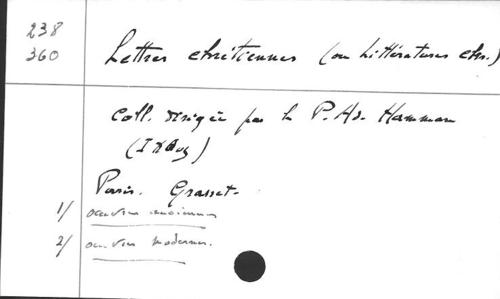 238
360
Lettres chrétiennes (ou Littératures chr.)
Coll. dirigée par le P. Ad. Hamman
Paris. Grasset.
1/ oeuvres anciennes
2/ oeuvres modernes.